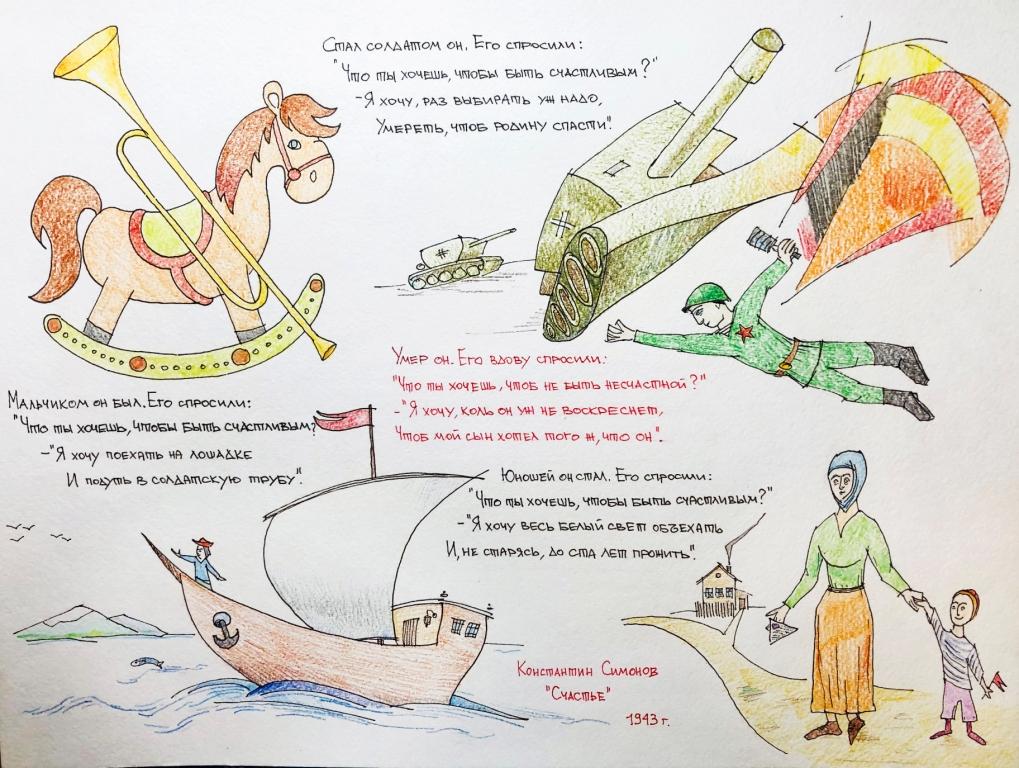 Стал солдатом он. Его спросили:
"Что ты хочешь, чтобы быть счастливым?"
-Я хочу, раз выбирать уж надо,
Умереть, чтоб родину спасти".
Умер он. Его вдову спросили:
"Что ты хочешь, чтоб не быть несчастной?"
-"Я хочу, коль он уж не воскреснет,
Чтоб мой сын хотел того ж, что он".
Мальчиком он был. Его спросили:
"Что ты хочешь, чтобы быть счастливым?
-"Я хочу поехать на лошадке
И подуть в солдатскую трубу".
Юношей он стал. Его спросили:
"Что ты хочешь, чтобы быть счастливым?"
-"Я хочу весь белый свет объехать
И, не старясь, до ста лет прожить".
Константин Симонов
"Счастье"
1943 г.